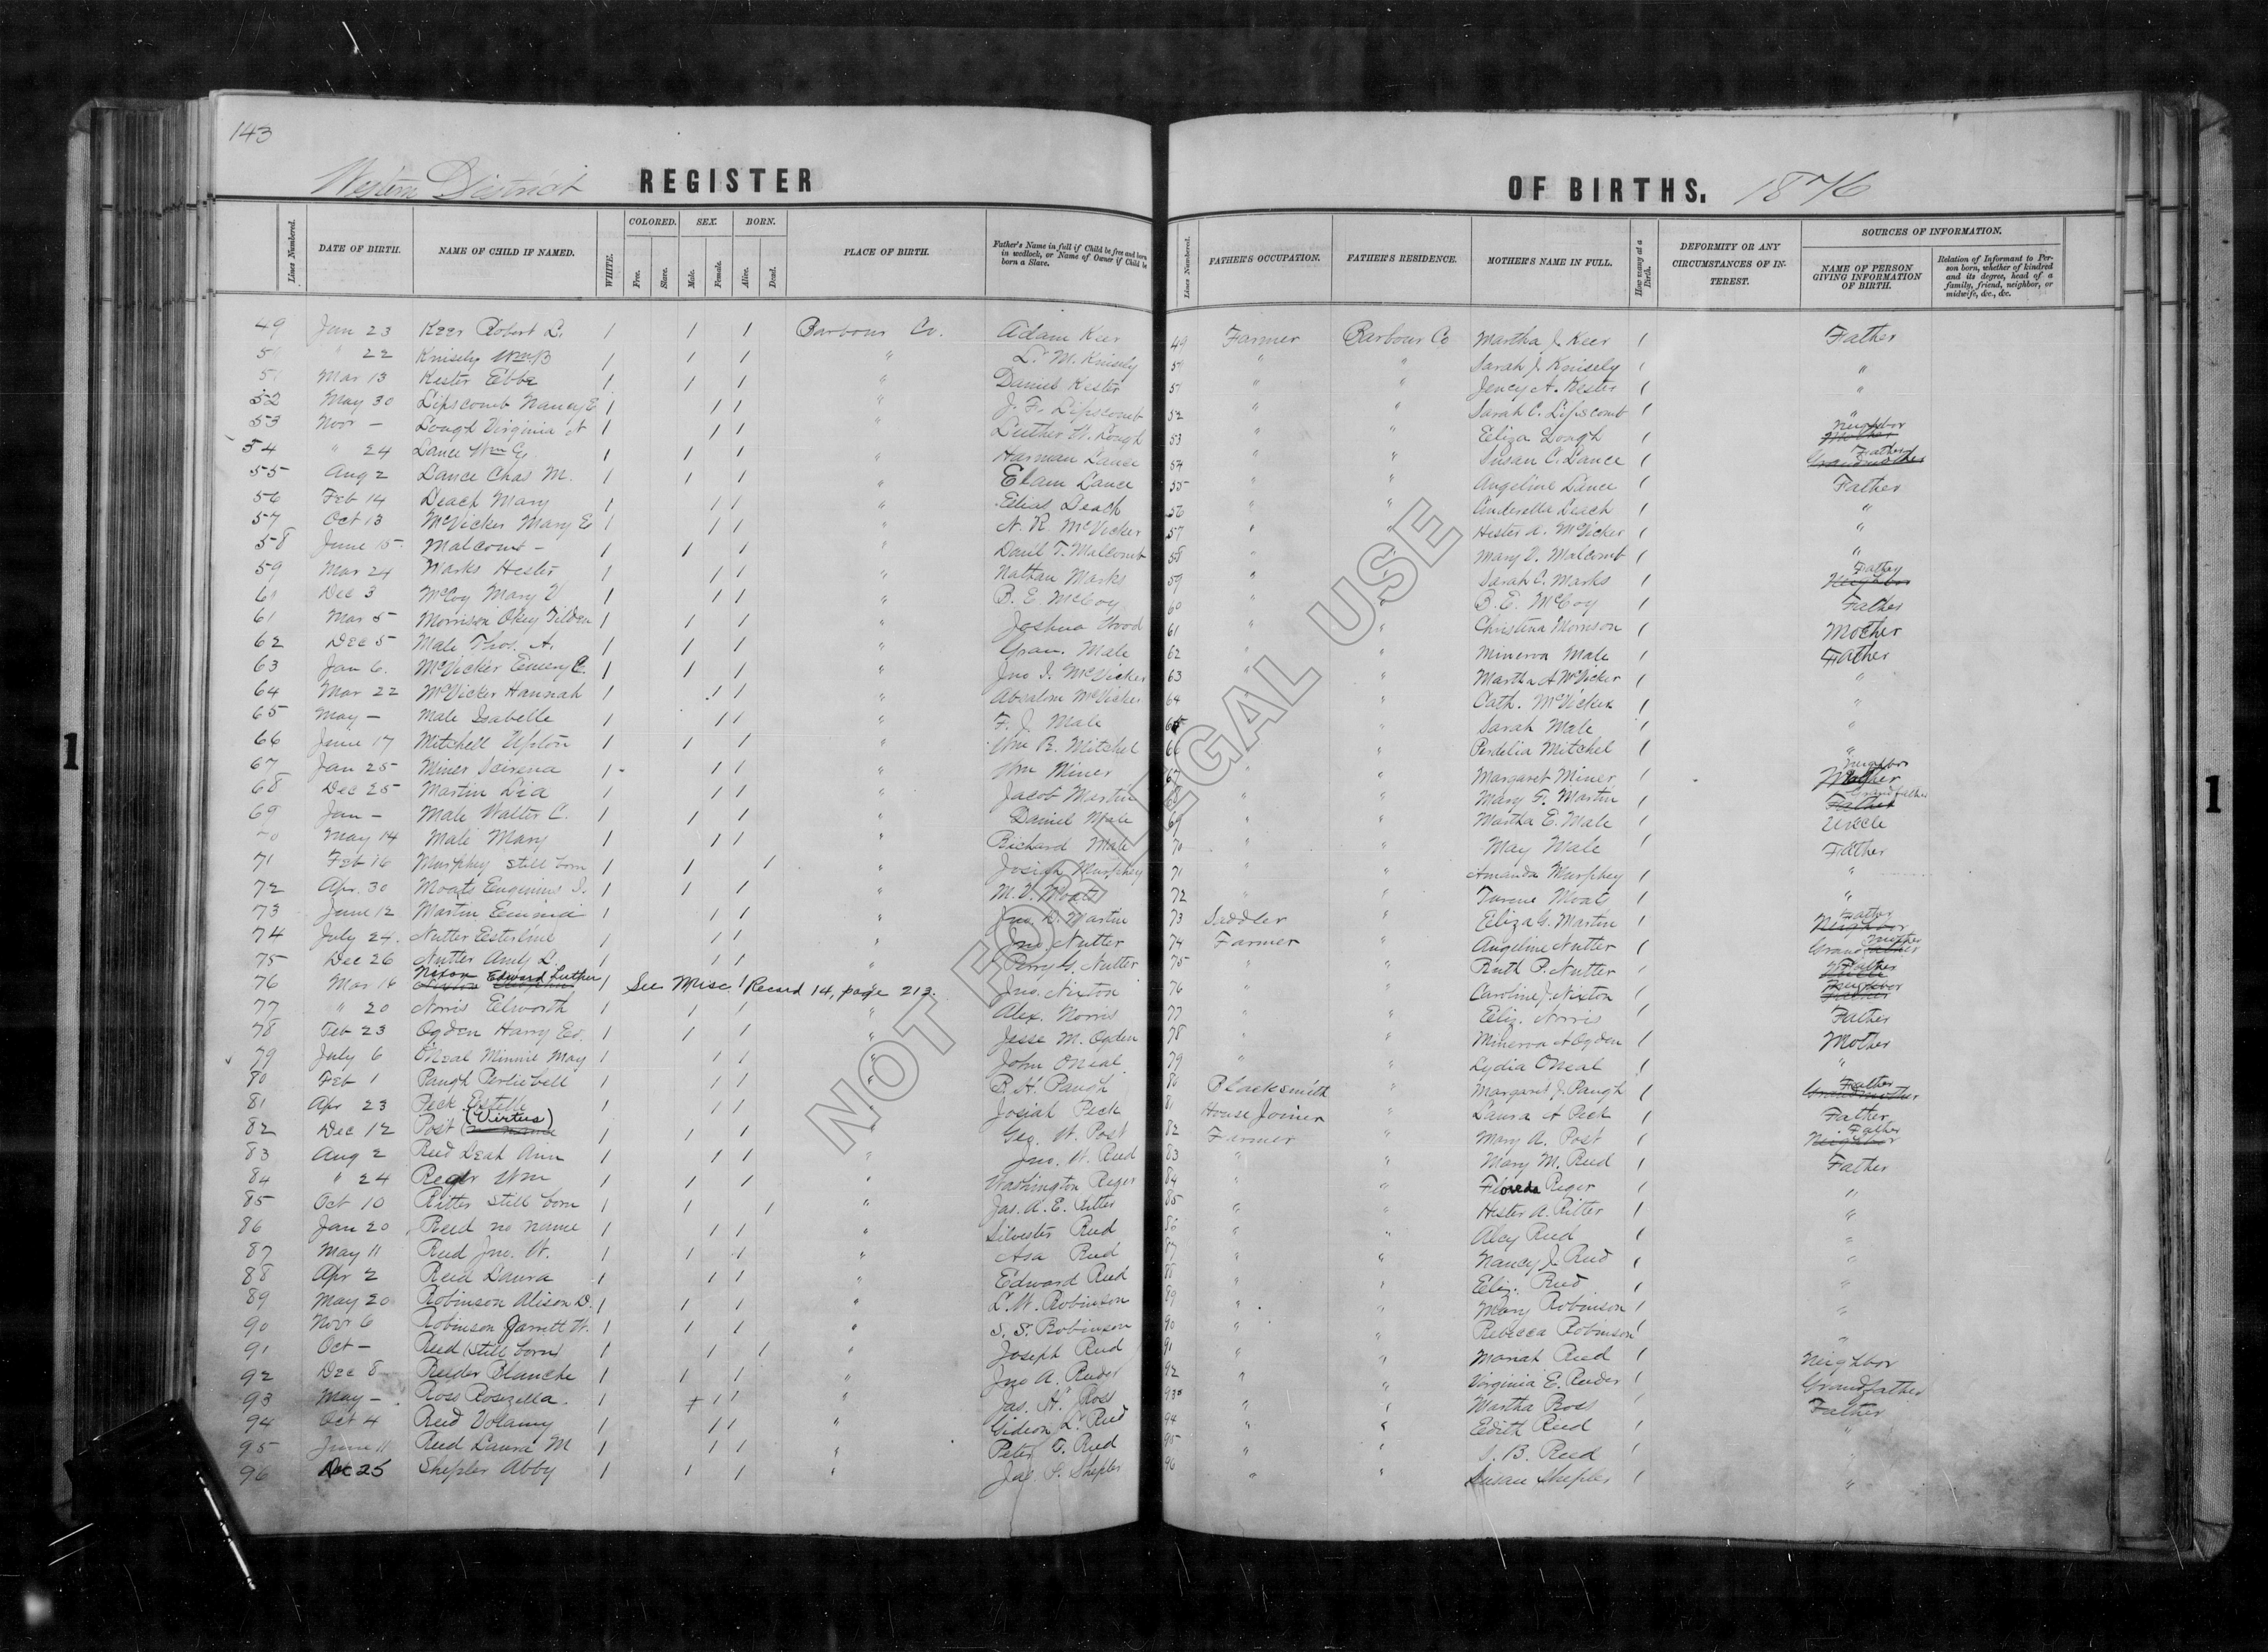 143
Western District REGISTER OF BIRTHS. 1876
Lines Numbered. DATE OF BIRTH. NAME OF CHILD IF NAMED. WHITE. COLORED. Free. Slave. SEX. Male. Female. BORN. Alive. Dead. PLACE OF BIRTH. Father's Name in full if Child be free and born in wedlock, or Name of Owner if Child be born a Slave. Lines Numbered. FATHER'S OCCUPATION. FATHER'S RESIDENCE. MOTHER'S NAME IN FULL. How many at a Birth. DEFORMITY OR ANY CIRCUMSTANCES OF INTEREST. SOURCES OF INFORMATION. NAME OF PERSON GIVING INFORMATION OF BIRTH. Relation of Informant to Person born, whether of kindred and its degree, head of a family, friend, neighbor, or midwife, &c., &c.
49 Jan 23 Keer Robert L. 1 1 1 Barbour Co. Adam Keer 49 Farmer Barbour Co Martha J. Keer 1 Father
" 22 Knisely Wm B 1 1 1 " L. M. Knisely " " Sarah J. Knisely 1 "
51 Mar 13 Kester Ebbe 1 1 1 " Daniel Kester 51 " " Jency A. Kester 1 "
52 May 30 Lipscomb Nancy E 1 1 1 " J. F. Lipscomb 52 " " Sarah C. Lipscomb 1 "
53 Nov - Lough Virginia 1 1 1 " Luther W. Lough 53 " " Eliza Lough 1 Neighbor Mother
54 " 24 Lance Wm 1 1 1 " Harman Lance 54 " " Susan C. Lance 1 Father Grandmother
55 Aug 2 Lance Chas M. 1 1 1 " Elam Lance 55 " " Angeline Lance 1 Father
56 Feb 14 Leach Mary 1 1 1 " Elias Leach 56 " " Cinderella Leach 1 "
57 Oct 13 McVicker Mary E 1 1 1 " N. R. McVicker 57 " " Hester A. McVicker 1 "
58 June 15 Malcomb - 1 1 1 " Danil T. Malcomb 58 " " Mary V. Malcomb 1 "
59 Mar 24 Marks Hester 1 1 1 " Nathan Marks 59 " " Sarah C. Marks 1 Father Neighbor
60 Dec 3 McCoy Mary V 1 1 1 " B. E. McCoy 60 " " B. E. McCoy 1 Father
61 Mar 5 Morrison Okey Tilden 1 1 1 " Joshua Wood 61 " " Christina Morrison 1 Mother
62 Dec 5 Male Thos. A. 1 1 1 " Gran. Male 62 " " Minerva Male 1 Father
63 Jan 6. McVicker Emery C. 1 1 1 " Jno I. McVicker 63 " " Martha A McVicker 1 "
64 Mar 22 McVicker Hannah 1 1 1 " Absalom McVicker 64 " " Cath. McVicker 1 "
65 May - Male Isabelle 1 1 1 " F. J. Male 65 " " Sarah Male 1 "
66 June 17 Mitchell Upton 1 1 1 " Wm B. Mitchel 66 " " Perdelia Mitchel 1 "
67 Jan 25 Miner Scirena 1 1 1 " Wm Miner 67 " " Margaret Miner 1 Neighbor Mother
68 Dec 25 Martin Lia 1 1 1 " Jacob Martin 68 " " Mary F. Martin 1 Grandfather Father
69 Jan - Male Walter C. 1 1 1 " Daniel Male 69 " " Martha E. Male 1 Uncle
70 May 14 Male Mary 1 1 1 " Richard Male 70 " " May Male 1 Father
71 Feb 16 Murphey still born 1 1 1 " Josiah Murphey 71 " " Amanda Murphey 1 "
72 Apr. 30 Moats Enginius S. 1 1 1 " M. V. Moats 72 " " Moats 1 "
73 June 12 Martin Emma 1 1 1 " Jno. D. Martin 73 Saddler " Eliza G. Martin 1 Father Neighbor
74 July 24. Nutter Esterline 1 1 1 " Jno. Nutter 74 Farmer " Angeline Nutter 1 Grandmother
75 Dec 26 Nutter Amy L. 1 1 1 " Perry G. Nutter 75 " " Ruth P. Nutter 1 Father
76 Mar 16 Nixon Edward Luther 1 See Misc. Record 14, page 213. Jno. Nixton 76 " " Caroline J. Nixton 1 Neighbor Father
77 " 20 Norris Elsworth 1 1 1 " Alex. Norris 77 " " Eliz. Norris 1 Father
78 Feb 23 Ogden Harry Ed. 1 1 1 " Jesse M. Ogden 78 " " Minerva A Ogden 1 Mother
79 July 6 ONeal Minnie May 1 1 1 " John ONeal 79 " " Lydia ONeal 1 "
80 Feb 1 Paugh Perliebell 1 1 1 " P. H. Paugh 80 Blacksmith " Margaret J. Paugh 1 Father Grandmother
81 Apr 23 Peck Estelle 1 1 1 " Josiah Peck 81 House Joiner " Laura A Peck 1 Father
82 Dec 12 Post (Virtus) no name 1 1 1 " Geo. W. Post 82 Farmer " Mary A. Post 1 Father Neighbor
83 Aug 2 Reed Leah Ann 1 1 1 " Jno. W. Reed 83 " " Mary M. Reed 1 Father
84 " 24 Reger Wm 1 1 1 " Washington Reger 84 " " Floreda Reger 1 "
85 Oct 10 Ritter Still born 1 1 1 " Jas. A. E. Ritter 85 " " Hester A. Ritter 1 "
86 Jan 20 Reed no name 1 1 1 " Silvester Reed 86 " " Alcy Reed 1 "
87 May 11 Reed Jno. W. 1 1 1 " Asa Reed 87 " " Nancy J. Reed 1 "
88 Apr 2 Reed Laura 1 1 1 " Edward Reed 88 " " Eliz. Reed 1 "
89 May 20 Robinson Alison D. 1 1 1 " L. W. Robinson 89 " " Mary Robinson 1 "
90 Nov 6 Robinson Jarrett W. 1 1 1 " S. S. Robinson 90 " " Rebecca Robinson 1 "
91 Oct - Reed (Still born) 1 1 1 " Joseph Reed 91 " " Mariah Reed 1 Neighbor
92 Dec 8 Reeder Blanche 1 1 1 " Jno A. Reeder 92 " " Virginia E. Reeder 1 Grandfather
93 May - Ross Rosizella. 1 1 1 " Jas. H. Ross 93 " " Martha Ross 1 Father
94 Oct 4 Reed Volanny 1 1 1 " Gideon L. Reed 94 " " Edith Reed 1 "
95 June 11 Reed Laura M 1 1 1 " Peter Reed 95 " " S. B. Reed 1 "
96 Dec 25 Shepler Abby 1 1 1 " Jas. S. Shepler 96 " " Susan Shepler 1 "
NOT FOR LEGAL USE
1
1